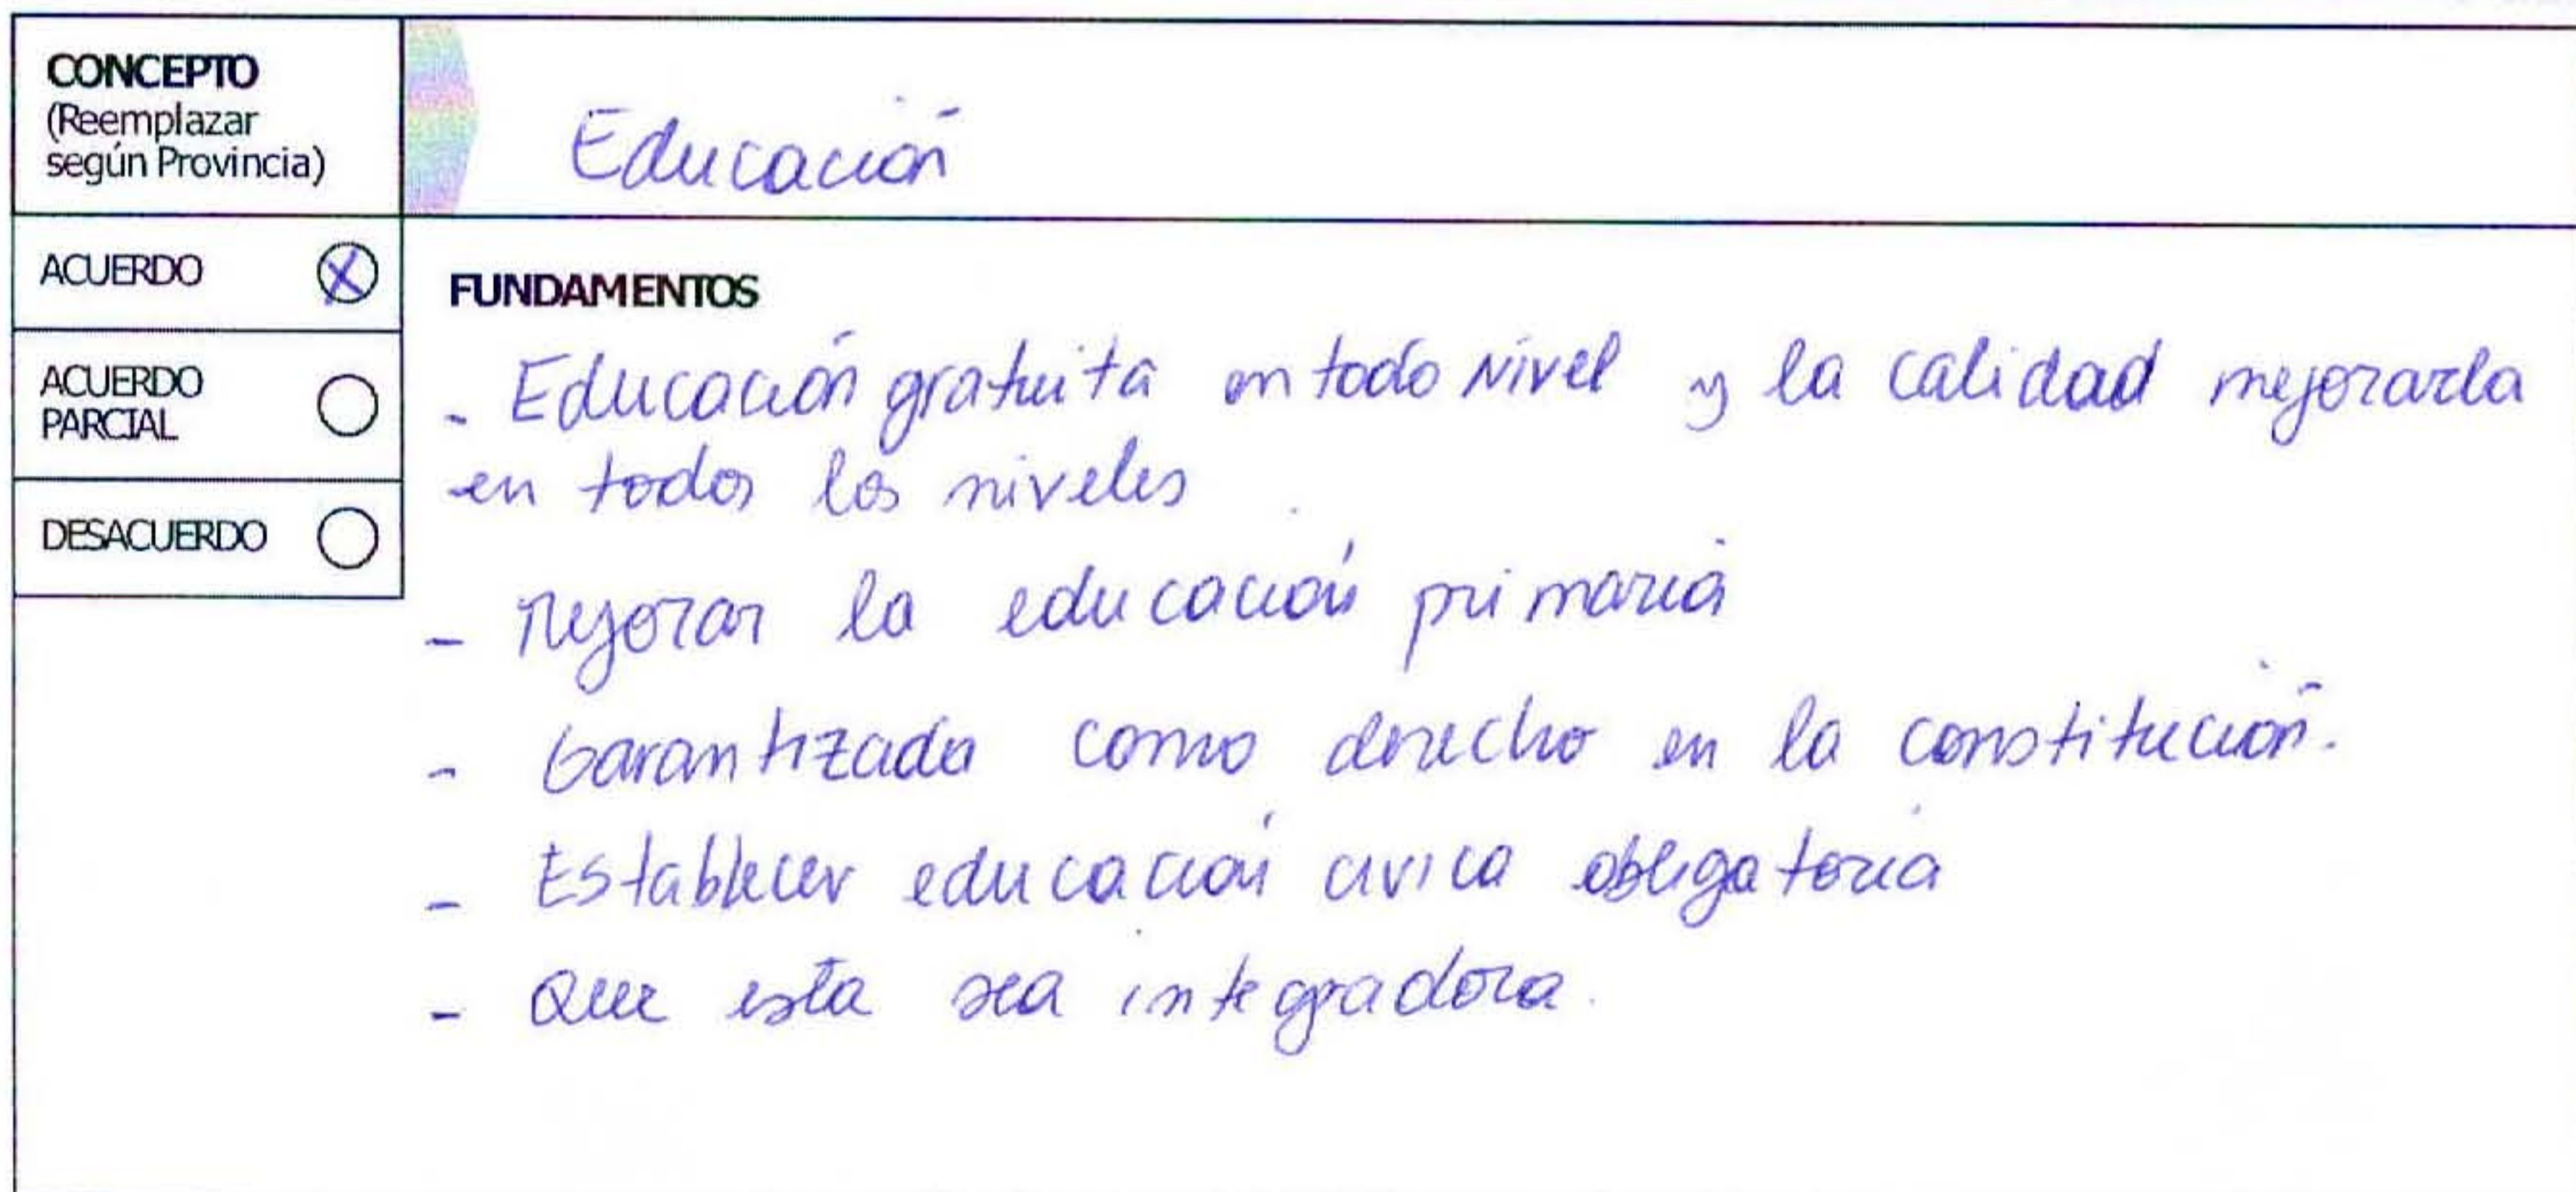 CONCEPTO
(Reemplazar
según Provincia)
Educación
ACUERDO
FUNDAMENTOS
ACUERDO
PARCIAL
DESACUERDO
- Educación gratuita en todo nivel y la calidad mejorarla
en todos los niveles
- Mejorar la educación primaria
- Garantizada como derecho en la constitución.
- Establecer educación civica obligatoria
- Que esta sea integradora.